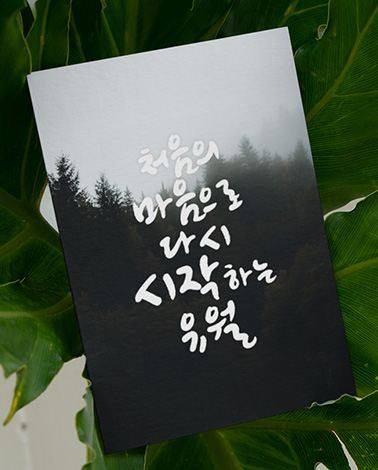 처음의
마음으로
다시
시작하는
유월